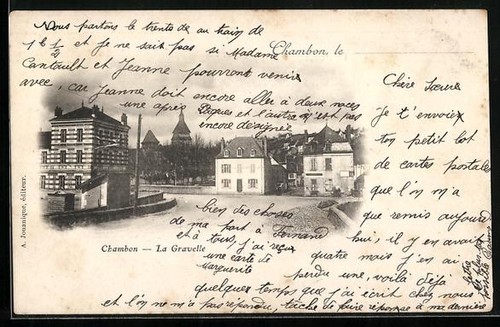 Nous partons le trente de au train de
1 h ½ et je ne sait pas si Madame
Cantault et Jeanne pourront venir
avec, car Jeanne doit encore aller à deux noces
une après Pâques et l'autre n'est pas
encore designée
Chambon, le
Chère Soeur
Je t'envoie
ton petit lot
de cartes postale
que l'on m'a
que remis aujourd
hui, il y en avait
quatre mois j'en ai
perdu une, voilà déjà
quelques temps que j'ai écrit chez nous
et l'on ne m'a pas répondu, tâche de faire réponse à ma dernière
bien des choses
de ma part à Fernand
et à tous, j'ai reçu
une carte de
Marguerite
Chambon — La Gravelle
A. Jouanique, éditeur.